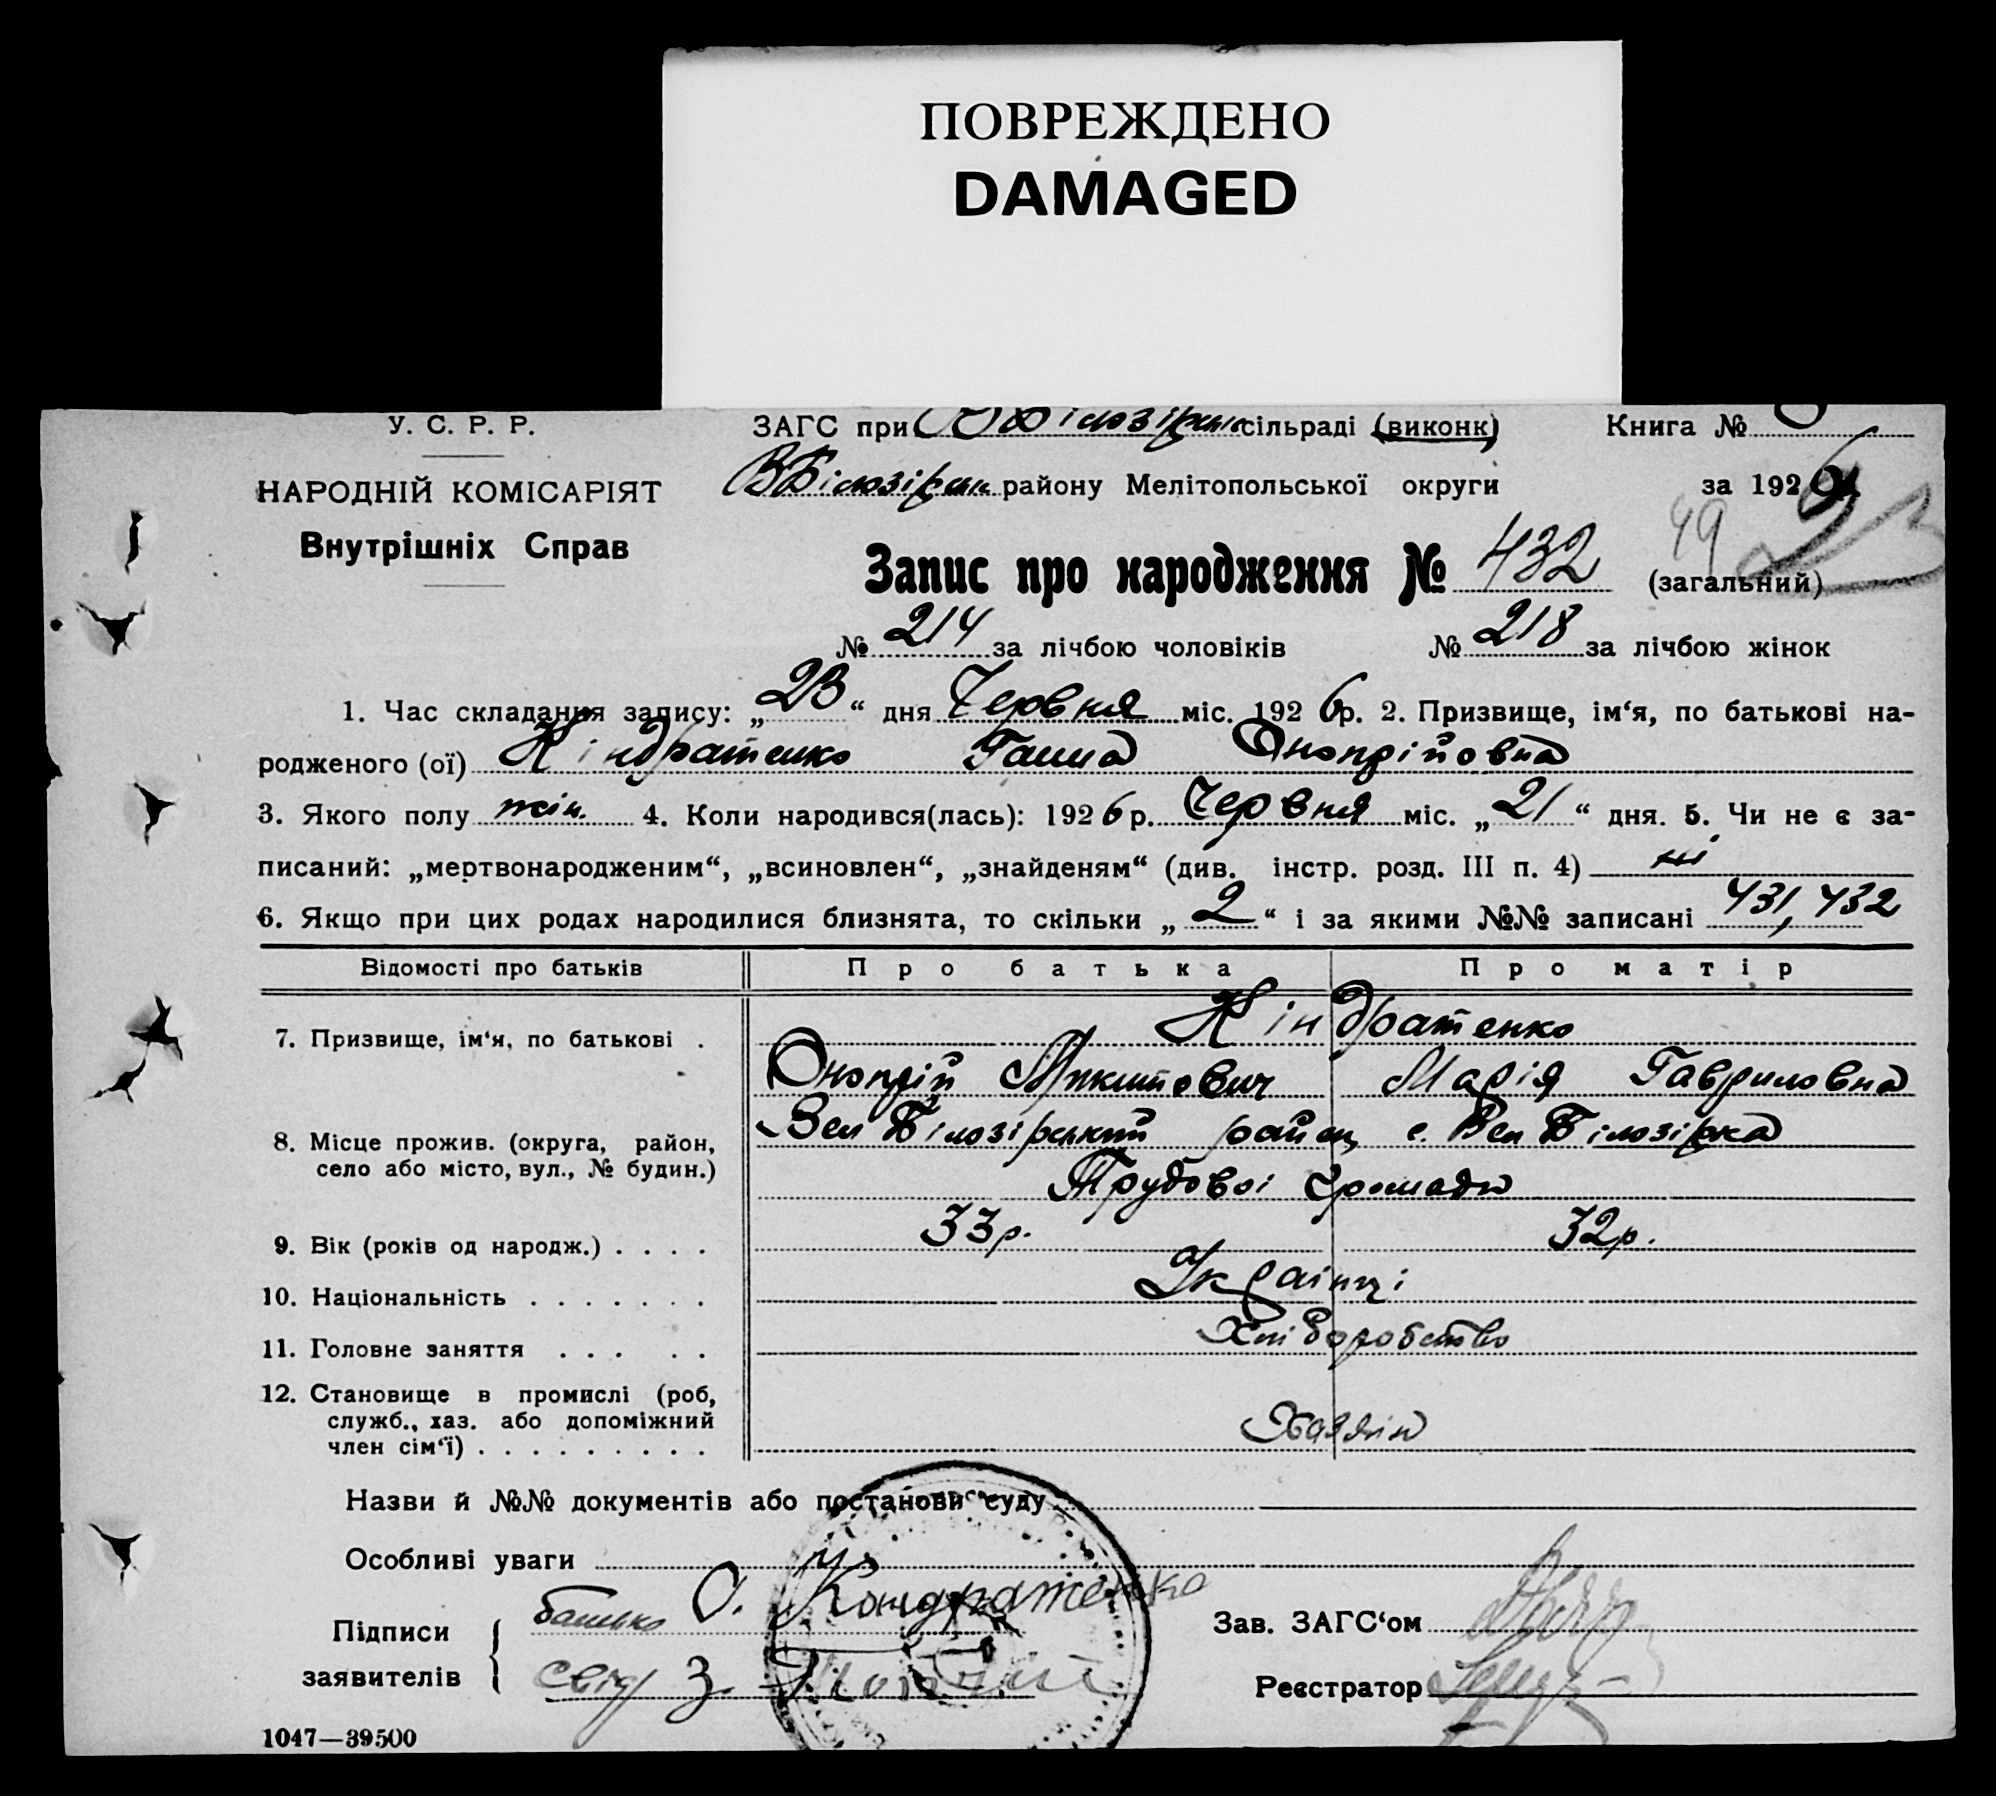 ПОВРЕЖДЕНО
DAMAGED
У. С. Р. Р.
НАРОДНІЙ КОМІСАРІЯТ
Внутрішніх Справ
ЗАГС при В Білозірськ сільраді (виконк) Книга №
ВБілозірськ району Мелітопольської округи за 1926
49 23
Запис про народження № 432 (загальний)
№ 214 за лічбою чоловіків № 218 за лічбою жінок
1. Час складання запису: „23“ дня Червня міс. 1926р. 2. Призвище, ім‘я, по батькові на-
родженого (ої) Кіндратенко Ганна Онопрійовна
3. Якого полу жін. 4. Коли народився(лась): 1926р. Червня міс. „21“ дня. 5. Чи не є за-
писаний: „мертвонародженим“, „всиновлен“, „знайденям“ (див. інстр. розд. III п. 4) ні
6. Якщо при цих родах народилися близнята, то скільки „2“ і за якими №№ записані 431, 432
Відомості про батьків Про батька Про матір
7. Призвище, ім‘я, по батькові . Кіндратенко
Онопрій Микитович Марія Гавриловна
8. Місце прожив. (округа, район,
село або місто, вул., № будин.)
Вел Білозірський район с. Вел Білозірка
Трудової Громади
9. Вік (років од народж.) . . . . 33р. 32р.
10. Національність . . . . . . . Українці
11. Головне заняття . . . . . Хліборобство
12. Становище в промислі (роб,
служб., хаз. або допоміжний
член сім‘ї) . . . . . . . . . Хазяїн
Назви й №№ документів або постанови суду
Особливі уваги
Підписи
заявителів
батько О. Кондратенко
свід З.
Зав. ЗАГС‘ом
Реєстратор
1047—39500